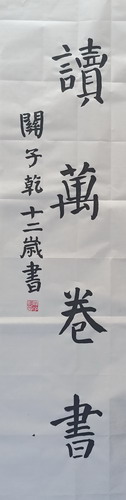 讀萬卷書
關子乾十二歲書